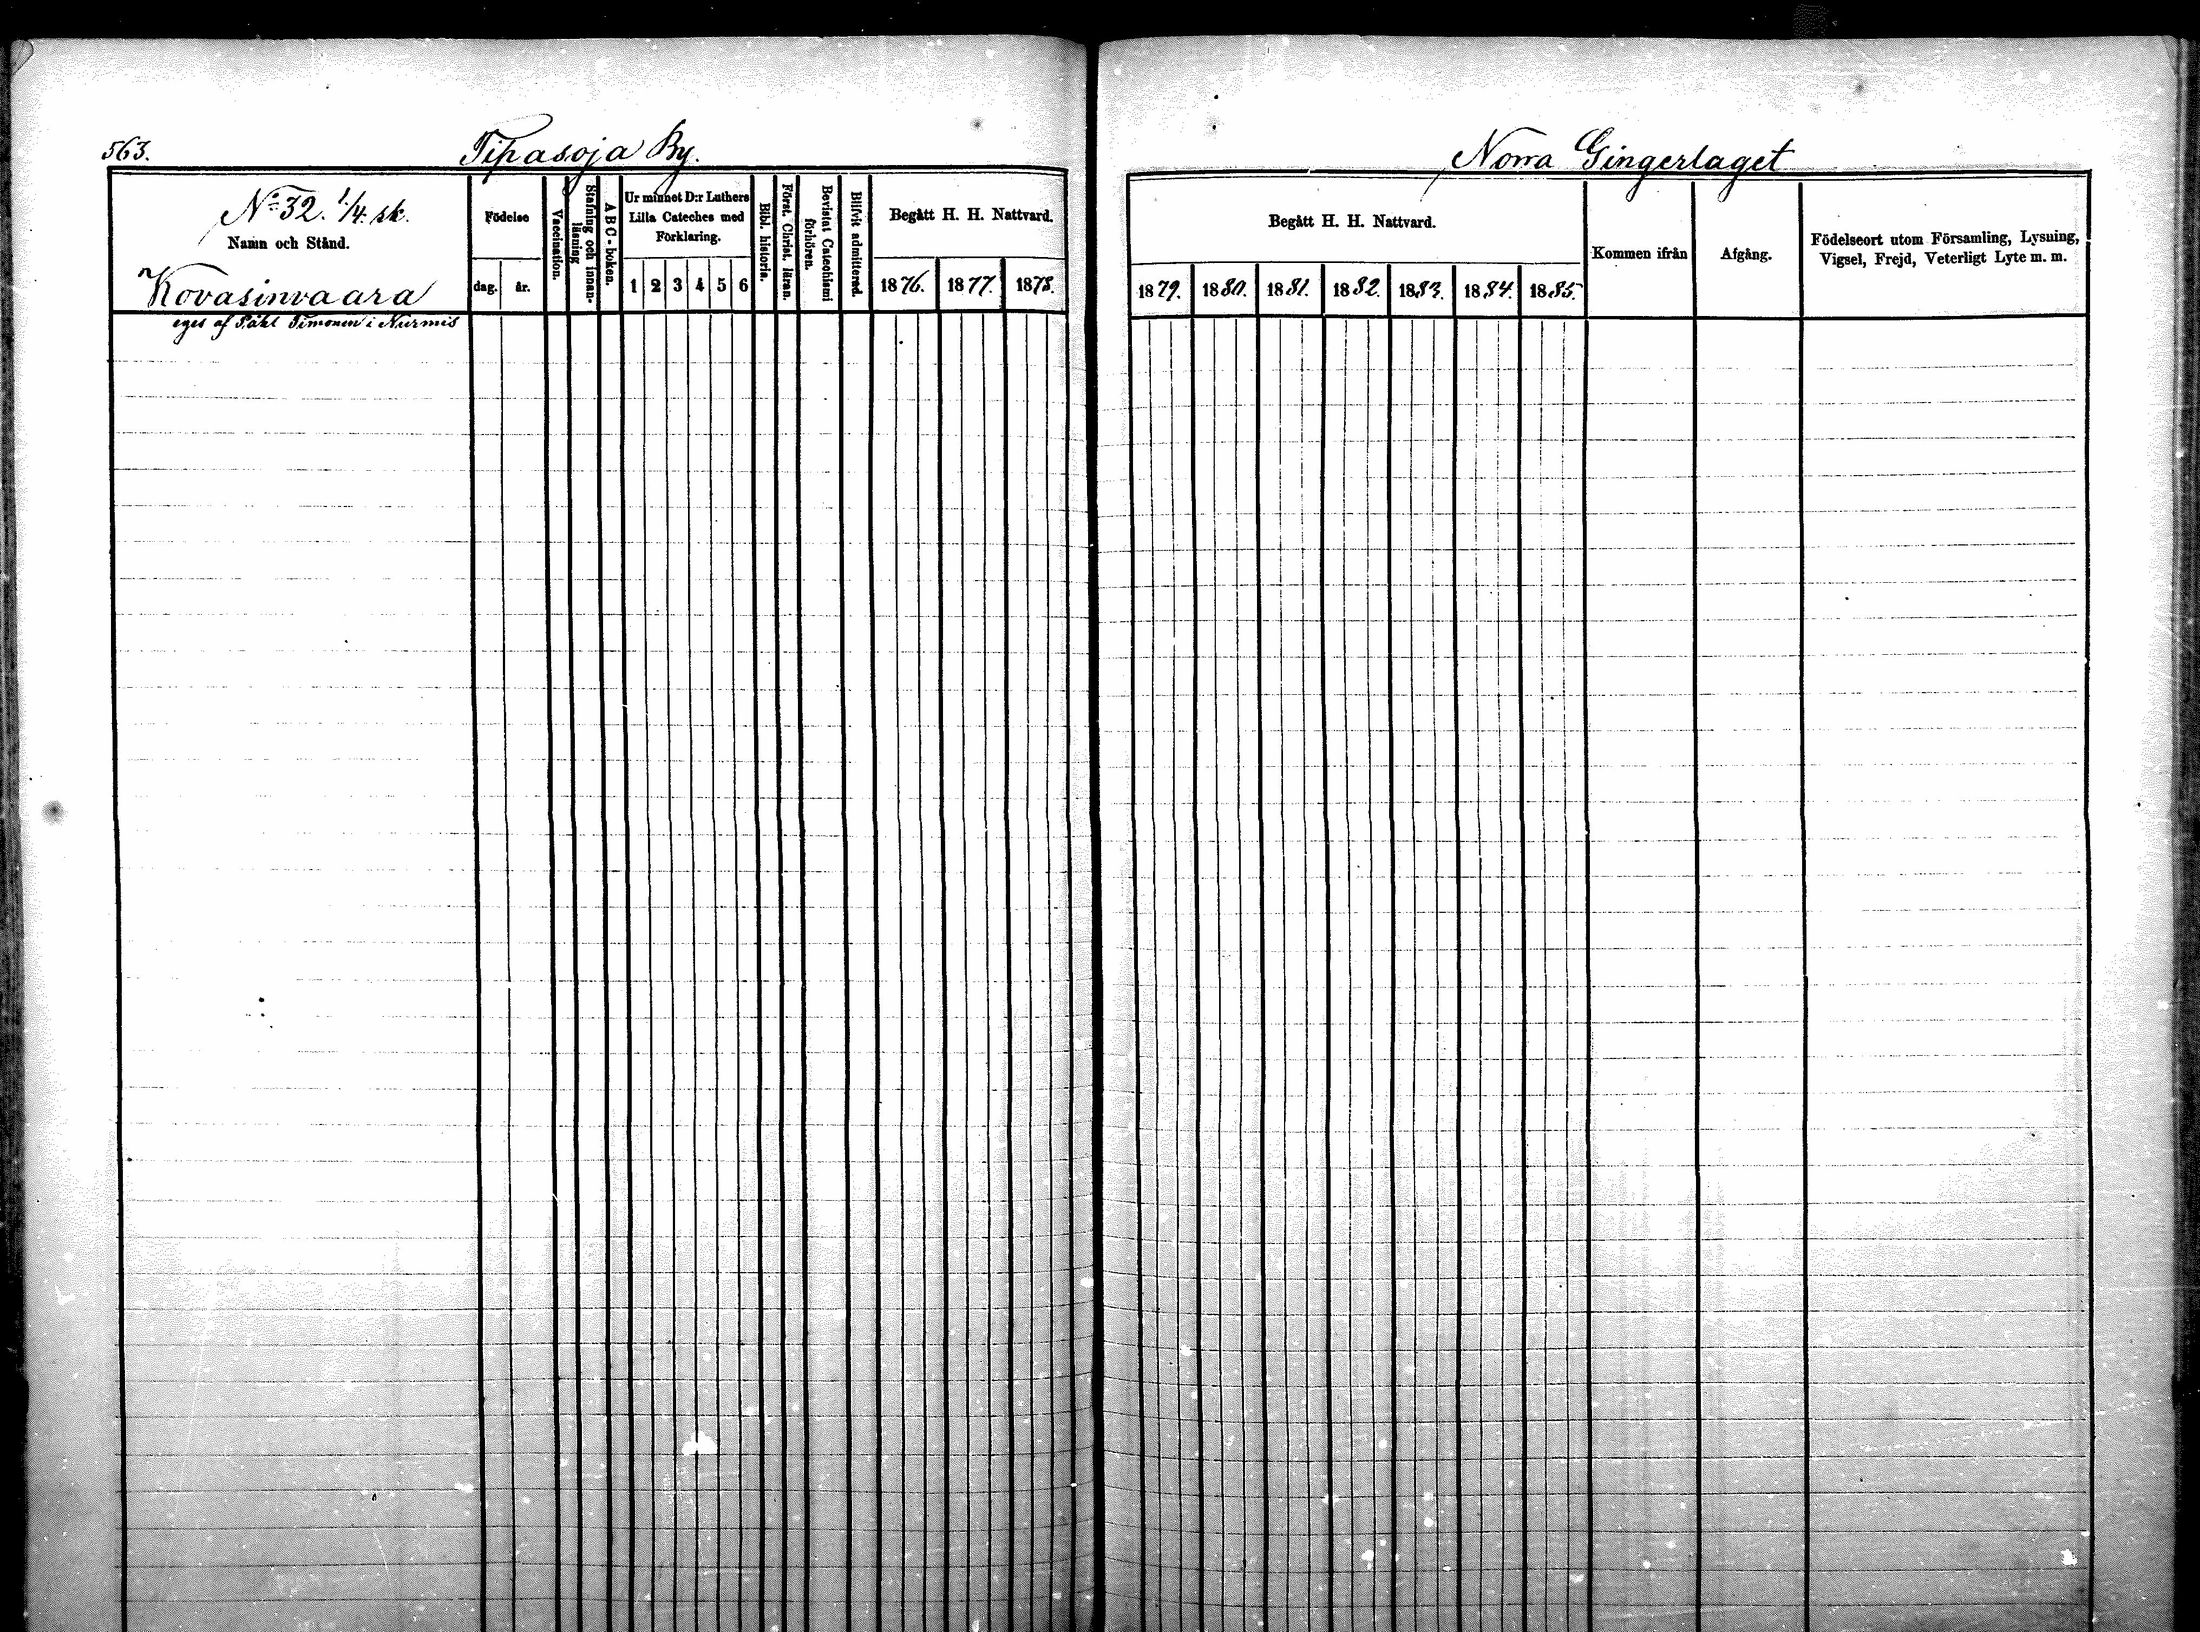 563.
Tipasoja By.
Norra Gingerlaget
No 32. 1/4. sk.
Namn och Stånd.
Kovasinvaara
eges af Påhl Timonen i Nurmis
Födelse
dag.
år.
Vaccination.
Stafning och innan-
läsning
ABC-boken.
Ur minnet D:r Luthers
Lilla Cateches med
Förklaring.
1 2 3 4 5 6
Bibl. historia.
Först. Christ. läran.
Bevistat Catechismi
förhören.
Blifvit admitterad.
Begått H. H. Nattvard.
1876. 1877. 1878.
Begått H. H. Nattvard.
1879. 1880. 1881. 1882. 1883. 1884. 1885.
Kommen ifrån
Afgång.
Födelseort utom Församling, Lysning,
Vigsel, Frejd, Veterligt Lyte m. m.